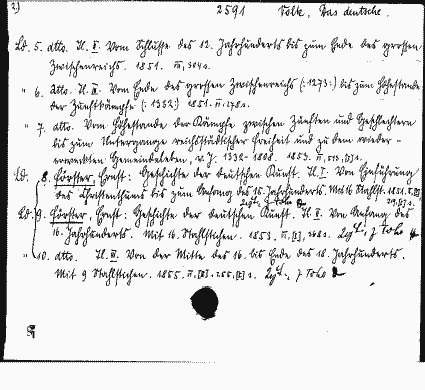 2) 2591 Volk, Das deutsche.
Ld. 5. dtto. Tl. II. Vom Schlusse des 12. Jahrhunderts bis zum Ende des großen
Zwischenreichs. 1851. IV, 304 S.
" 6. dtto. Tl. III. Vom Ende des großen Zwischenreichs (: 1273 :) bis zum Höhestande
der Zunftkämpfe (: 1332 :) 1851. II, 278 S.
" 7. dtto. Vom Höhestande der Kämpfe zwischen Zünften und Geschlechtern
bis zum Untergange reichsstädtischer Freiheit und zu dem wieder-
erweckten Gemeindeleben, v. J. 1332-1808. 1853.
Ld. 8. Förster, Ernst: Geschichte der deutschen Kunst. Tl. I. Von Einführung
des Christenthums bis zum Anfang des 15. Jahrhunderts. Mit 16 Stahlst. 1851.
Ld. 9. Förster, Ernst: Geschichte der deutschen Kunst. Tl. II. Von Anfang des
16. Jahrhunderts. Mit 16. Stahlstichen. 1853.
" 10. dtto. Tl. III. Von der Mitte des 16. bis Ende des 18. Jahrhunderts.
Mit 9 Stahlstichen. 1855.